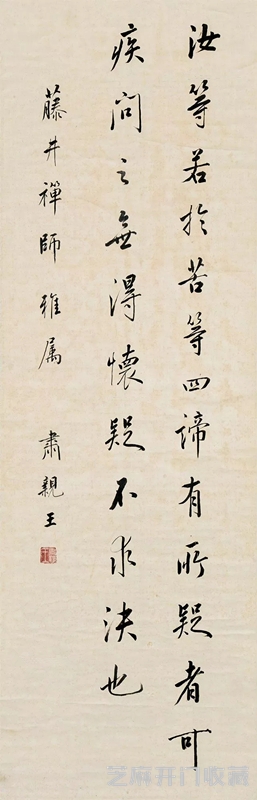 汝等若於苦等四諦有所疑者可
疾問之無得懷疑不求決也
藤井禪師雅属 肅親王
芝麻开门收藏